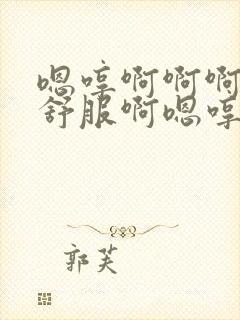 嗯哼啊啊啊
舒服啊嗯哼
郭芙